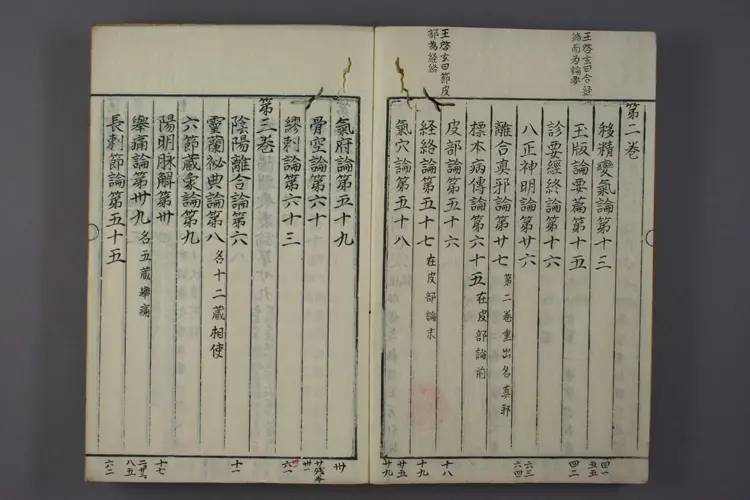 王啓玄曰合經
終而为論要
王啓玄曰節皮
部為經絡
第二卷
移精變氣論第十三
玉版論要篇第十五
診要經終論第十六
八正神明論第廿六
離合真邪論第廿七 第二卷重出名真邪
標本病傳論第六十五 在皮部論前
皮部論第五十六
經絡論第五十七 在皮部論末
氣穴論第五十八
四一
五五
四二
六三
六四
十八
十九
廿五
廿九
氣府論第五十九
骨空論第六十
繆刺論第六十三
第三卷
陰陽離合論第六
靈蘭祕典論第八 名十二蔵相使
六節蔵象論第九
陽明脉解第卅
舉痛論第卅九 名五蔵舉痛
長刺節論第五十五
卅
卅一
六一
十一
十七
八五
六二